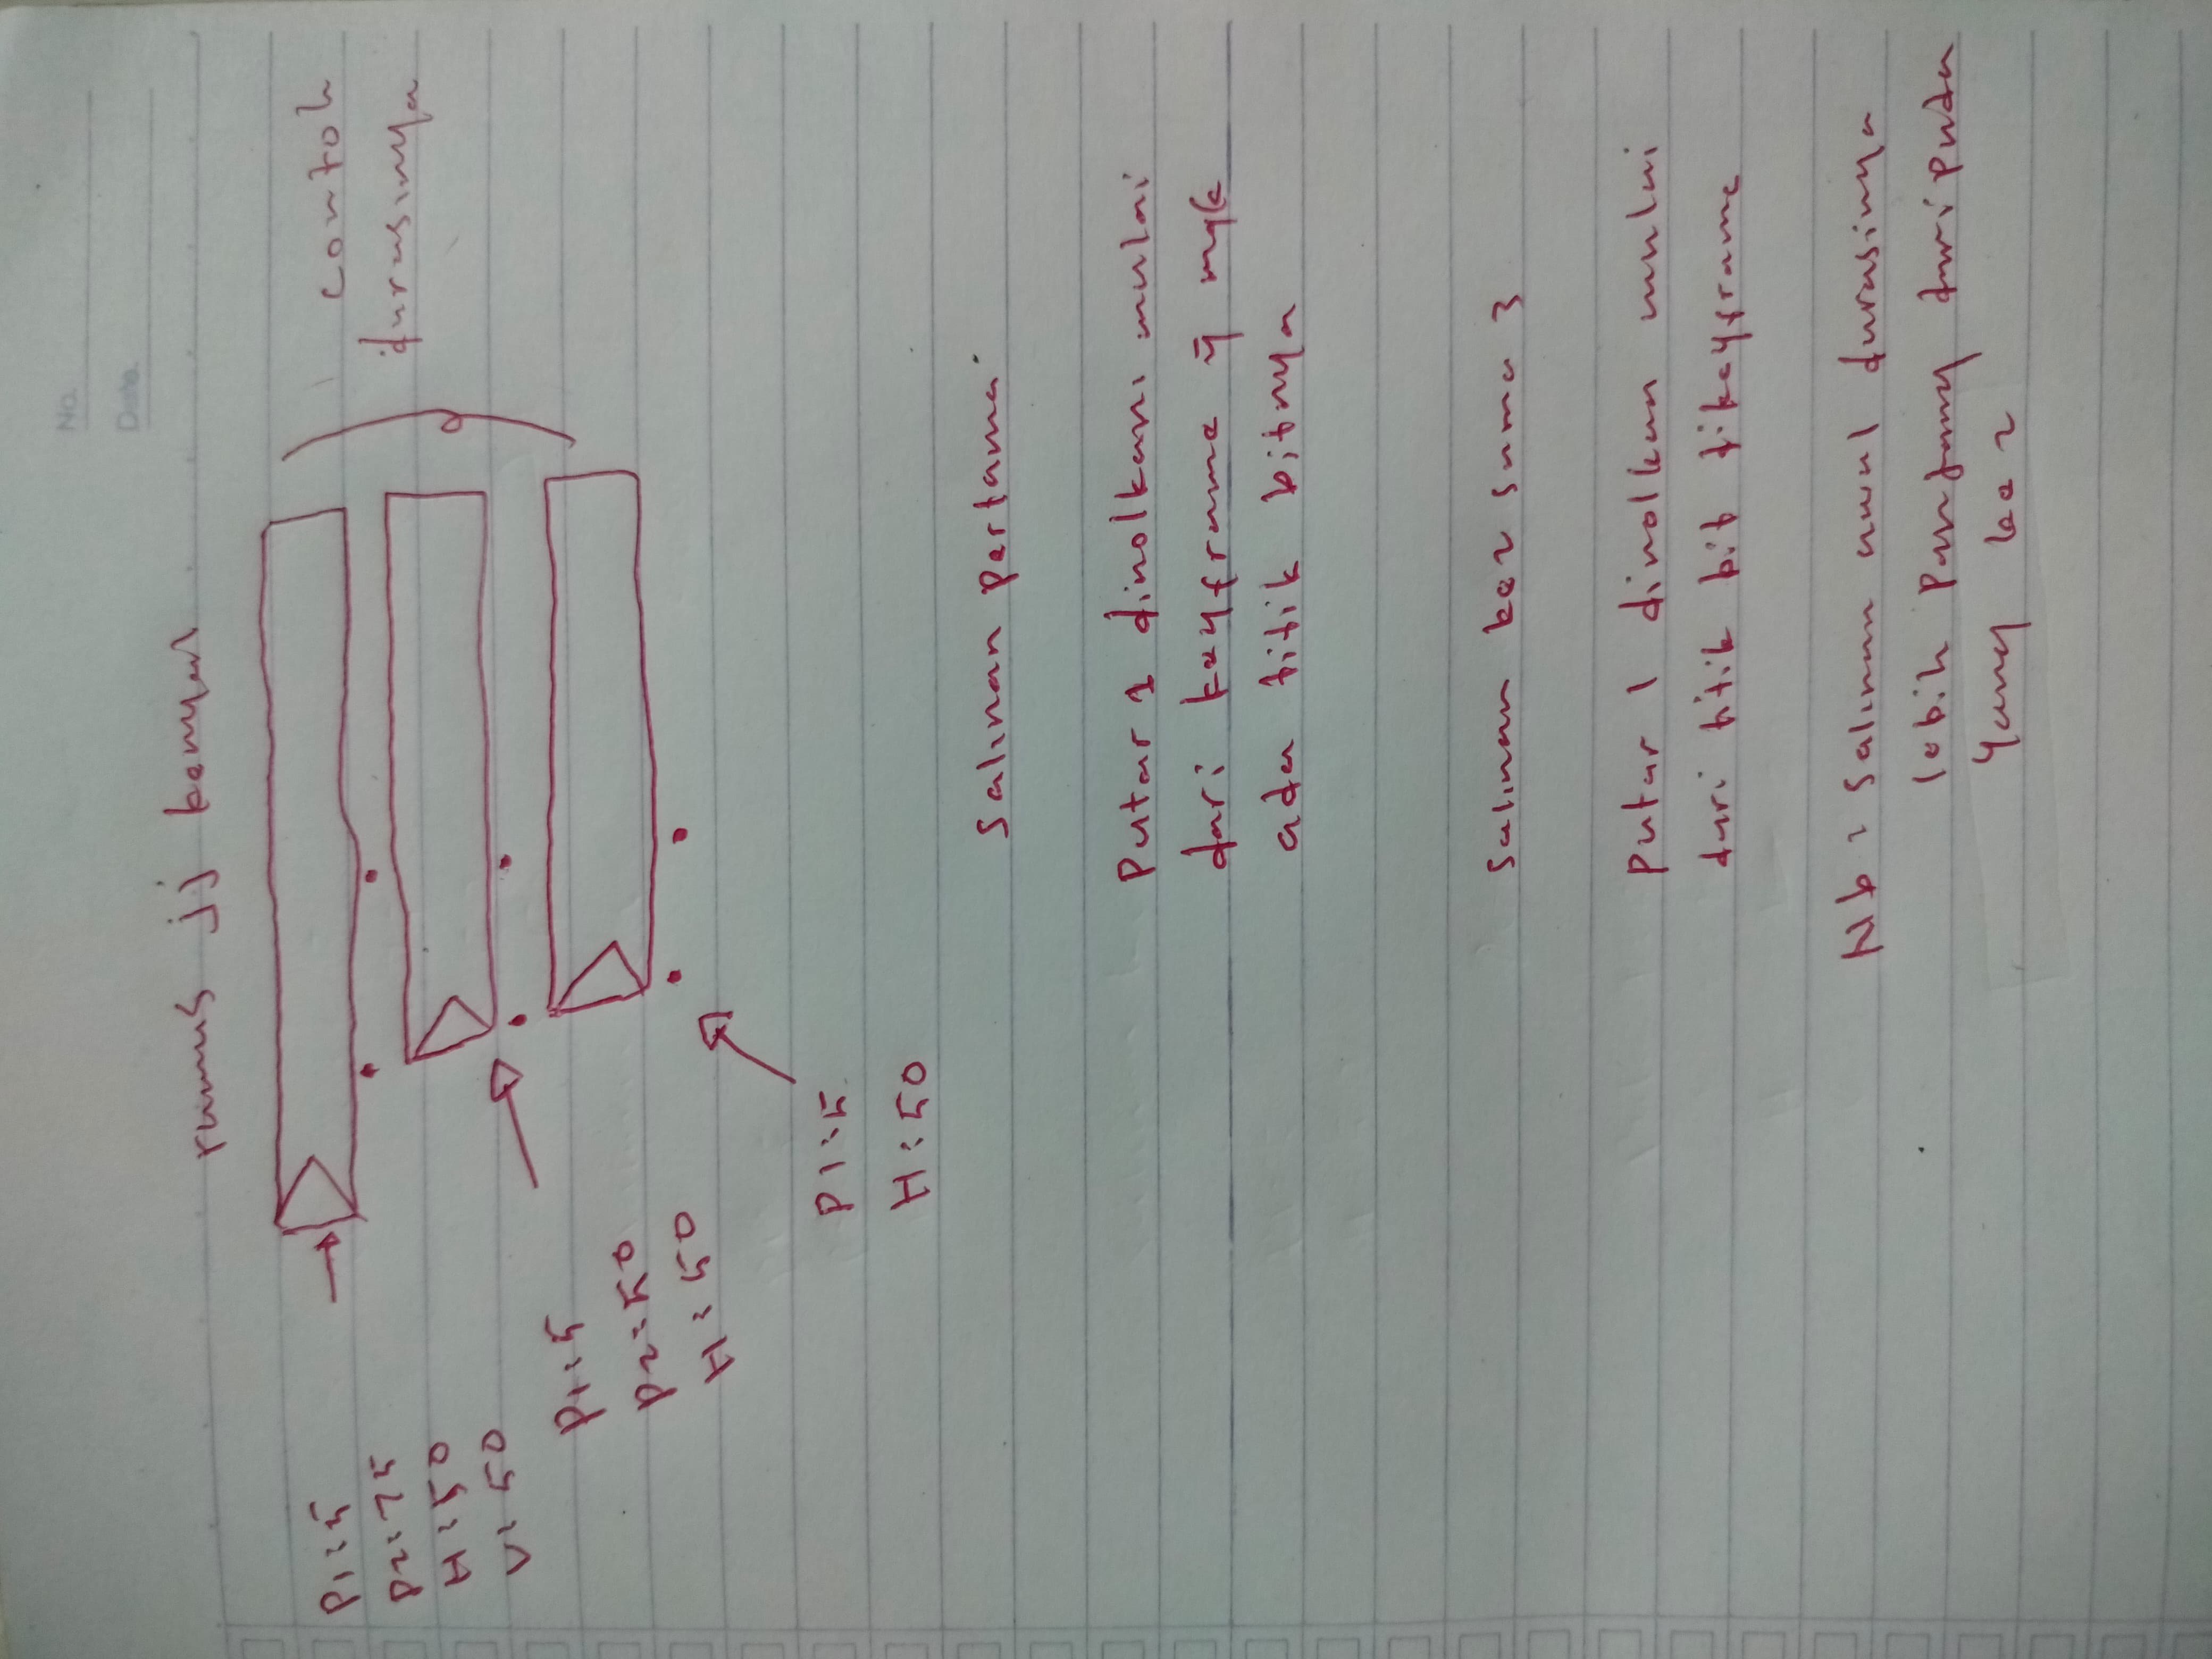 No.
Date
rumus jj kenyal
contoh
durasinya
P1:5
P2:75
H:50
V:50
P1:5
P2:50
H:50
P1:5
H:50
Salinan Pertama
Putar 1 dinolkan mulai
dari keyframe yg
ada titik bitnya
Salinan ke2 sama 3
Putar 1 dinolkan mulai
dari titik bit dikeyframe
Nb: Salinan awal durasinya
lebih Panjang dari pada
Yang ke 2